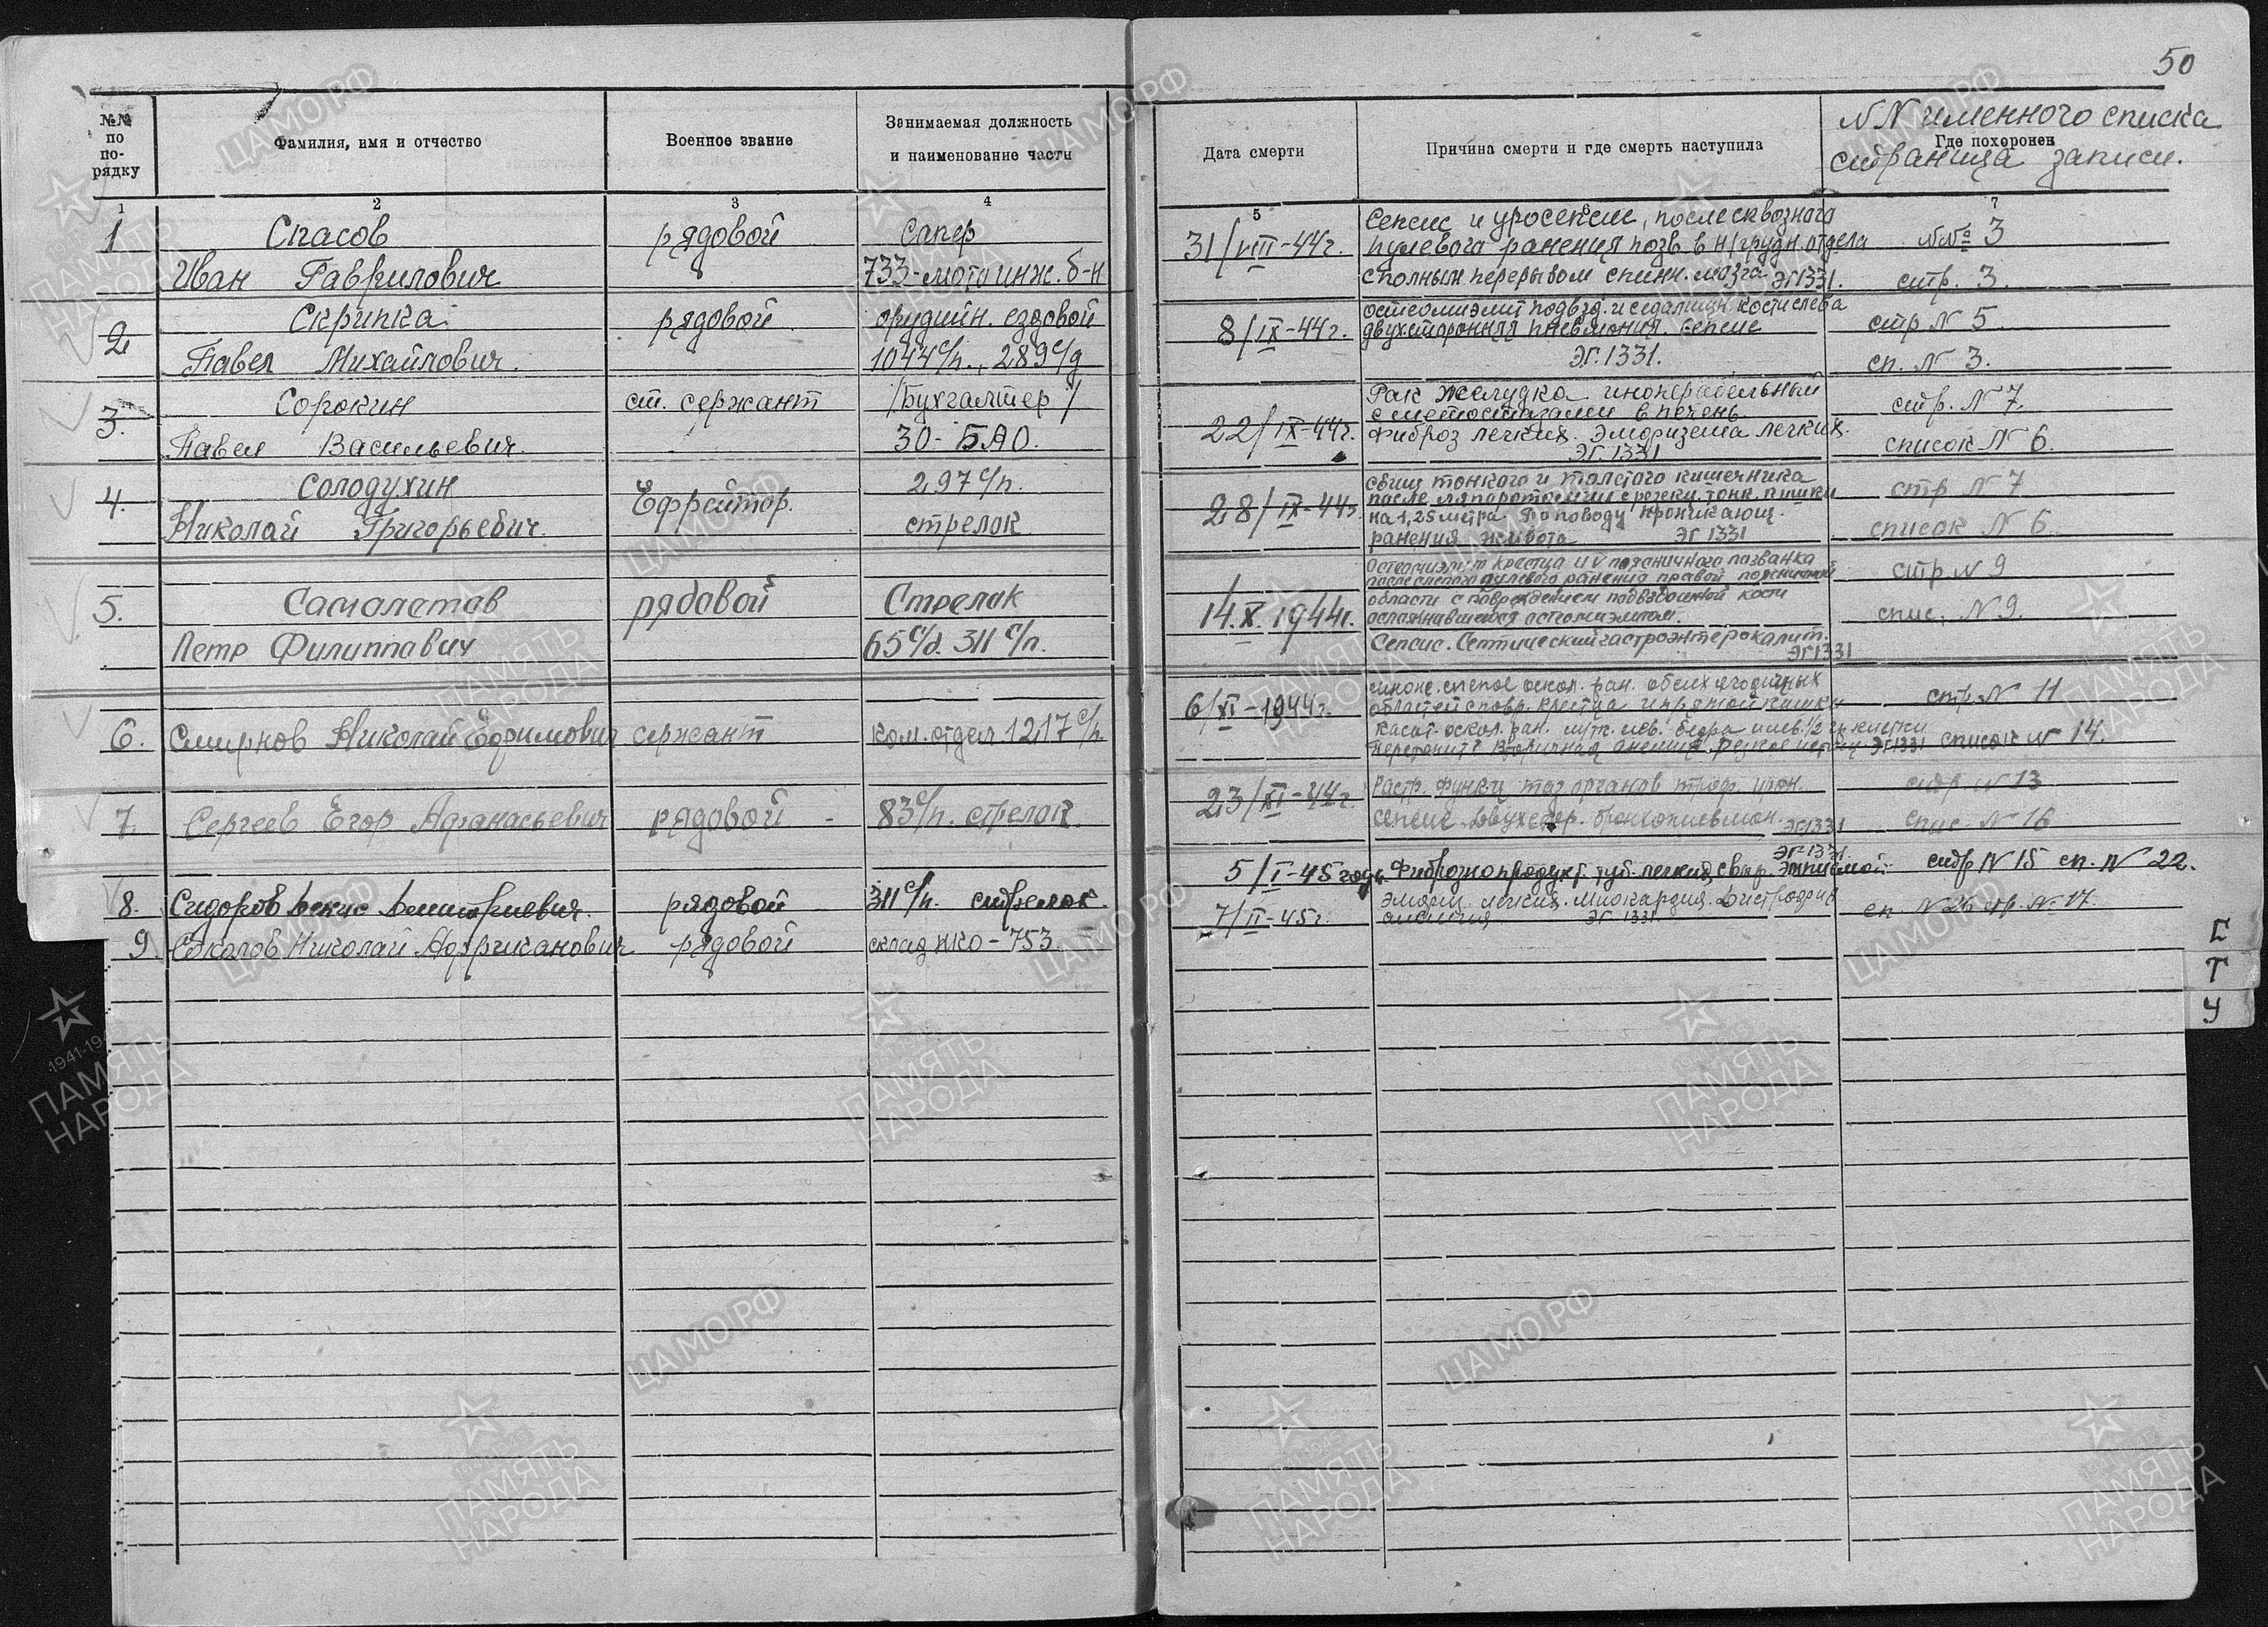 50
№№ по по-рядку
Фамилия, имя и отчество
Военное звание
Занимаемая должность
и наименование части
Дата смерти
Причина смерти и где смерть наступила
NN именного списка
Где похоронен
страница записи.
1 2 3 4 5 6 7
1 Спасов рядовой Сапер
Иван Гаврилович 733-мото инж. б-н
31/VIII-44г.
Сепсис и уросепсис, после сквозного
пулевого ранения позв. в н/грудн. отдела
с полным перерывом спинн. мозга ЭГ1331.
№№ 3
стр. 3.
2 Скрипка рядовой орудийн. ездовой
Павел Михайлович. 1044 с/п., 289 с/д
8/IX-44г.
остеомиэлит подвзд. и седалищн. кости слева
двухсторонняя пневмония. Сепсис
ЭГ.1331.
стр N 5
сп. N 3.
3. Сорокин ст. сержант /Бухгалтер/
Павел Васильевич. 30-БАО.
22/IX-44г.
Рак желудка иноперабельный
с метостазами в печень
Фиброз легких. Эмфизема легких.
ЭГ 1331
стр. N 7
список N 6.
4. Солодухин Ефрейтор. 297 с/п.
Николай Григорьевич. стрелок
28/IX-44г
свищ тонкого и толстого кишечника
после ляпоротомии с резекц. тонк. кишки
на 1,25 метра по поводу проникающ.
ранения живота ЭГ 1331
стр N 7
список N 6
5. Самолетов рядовой Стрелок
Петр Филиппович 65 с/д. 311 с/п.
14.X.1944г.
Остеомиэлит крестца и V поясничного позванка
после слепого пулевого ранения правой поясничной
области с повреждением подвздошной кости
осложнившегося остеомиэлитом.
Сепсис. Септический гастроэнтероколит.
ЭГ1331
стр N 9
спис. N 9.
6. Смирнов Николай Ефимович сержант ком. отдел 1217 с/п
6/XI-1944г.
слепое оскол. ран. обеих ягодичных
областей с повр. крестца и прямой кишки
касат. оскол. ран. мягк. лев. бедра и лев. 1/2 гр клетки
перетонит вторичная анемия, ЭГ1331
стр N 11
список N 14.
7. Сергеев Егор Афанасьевич рядовой - 83 с/п. стрелок
23/XI-44г.
Растр. функц таз органов
сепсис. Двухстор. бронхопневмон. ЭГ1331
стр. N 13
спис. N 16
8. Сидоров Денис Дмитриевич. рядовой 311 с/п. стрелок.
5/I-45 года.
ЭГ-1331.
Фиброзно продукт. туб. легких с втор. Эмпиемой
стр N 15 сп. N 22.
9 Соколов Николай Африканович рядовой склад НКО-753.
7/II-45г.
Эмфиз. легких. Миокардия. Дистрофия
ЭГ 1331
сп N 26 стр. N-17.
С
Т
У